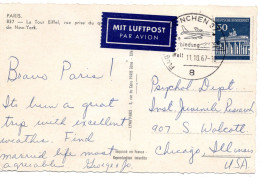 PARIS.
817 — La Tour Eiffel, vue prise du
de New-York.
MIT LUFTPOST
PAR AVION
MÜNCHEN
11.10.67
8
50
Bravo Paris!
Its been a great
trip with excellent
weather. Find
married life most
agreeable George Jr
Psychol Dept.
Inst. Juvenile Research
907 S. Wolcott
Chicago, Illinois
USA